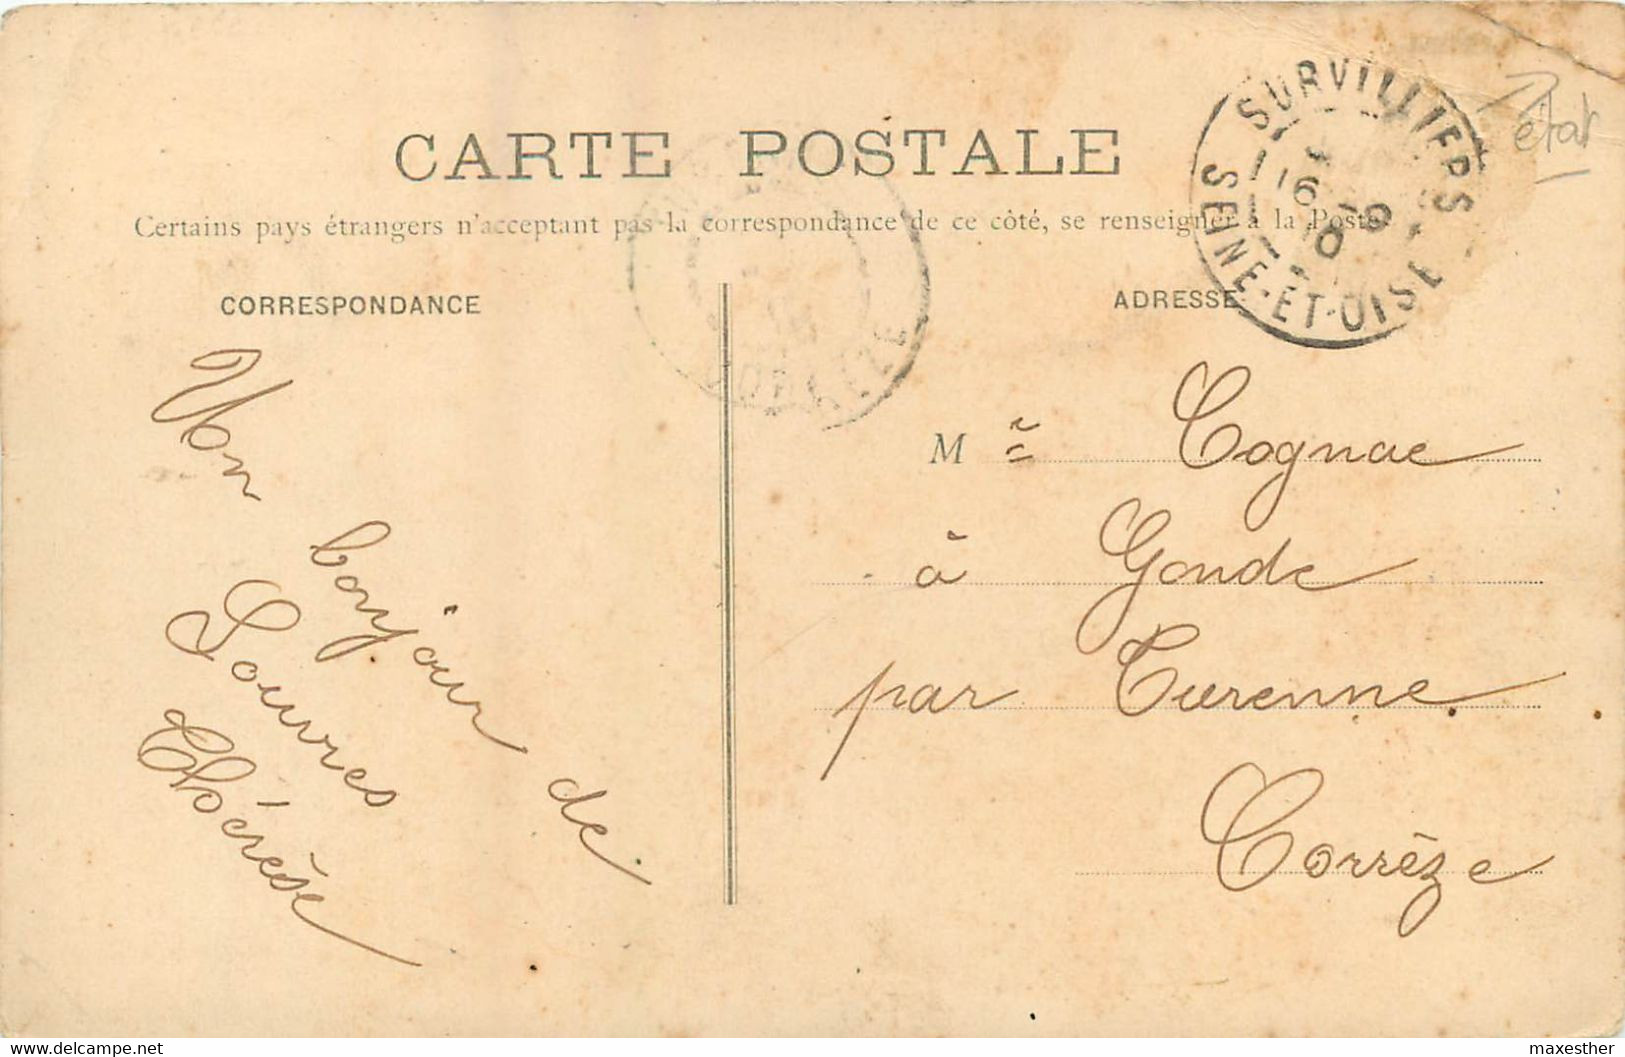 CARTE POSTALE
Certains pays étrangers n'acceptant pas la correspondance de ce côté, se renseigner à la Poste
CORRESPONDANCE
ADRESSE
SURVILLIERS
16 -9
10
SEINE-ET-OISE
état
CORRÈZE
Mon
bonjour de
Louvres
Thérèse
M
Cognac
à Gonde
par Turenne
Corrèze
Delcampe.net
maxesther